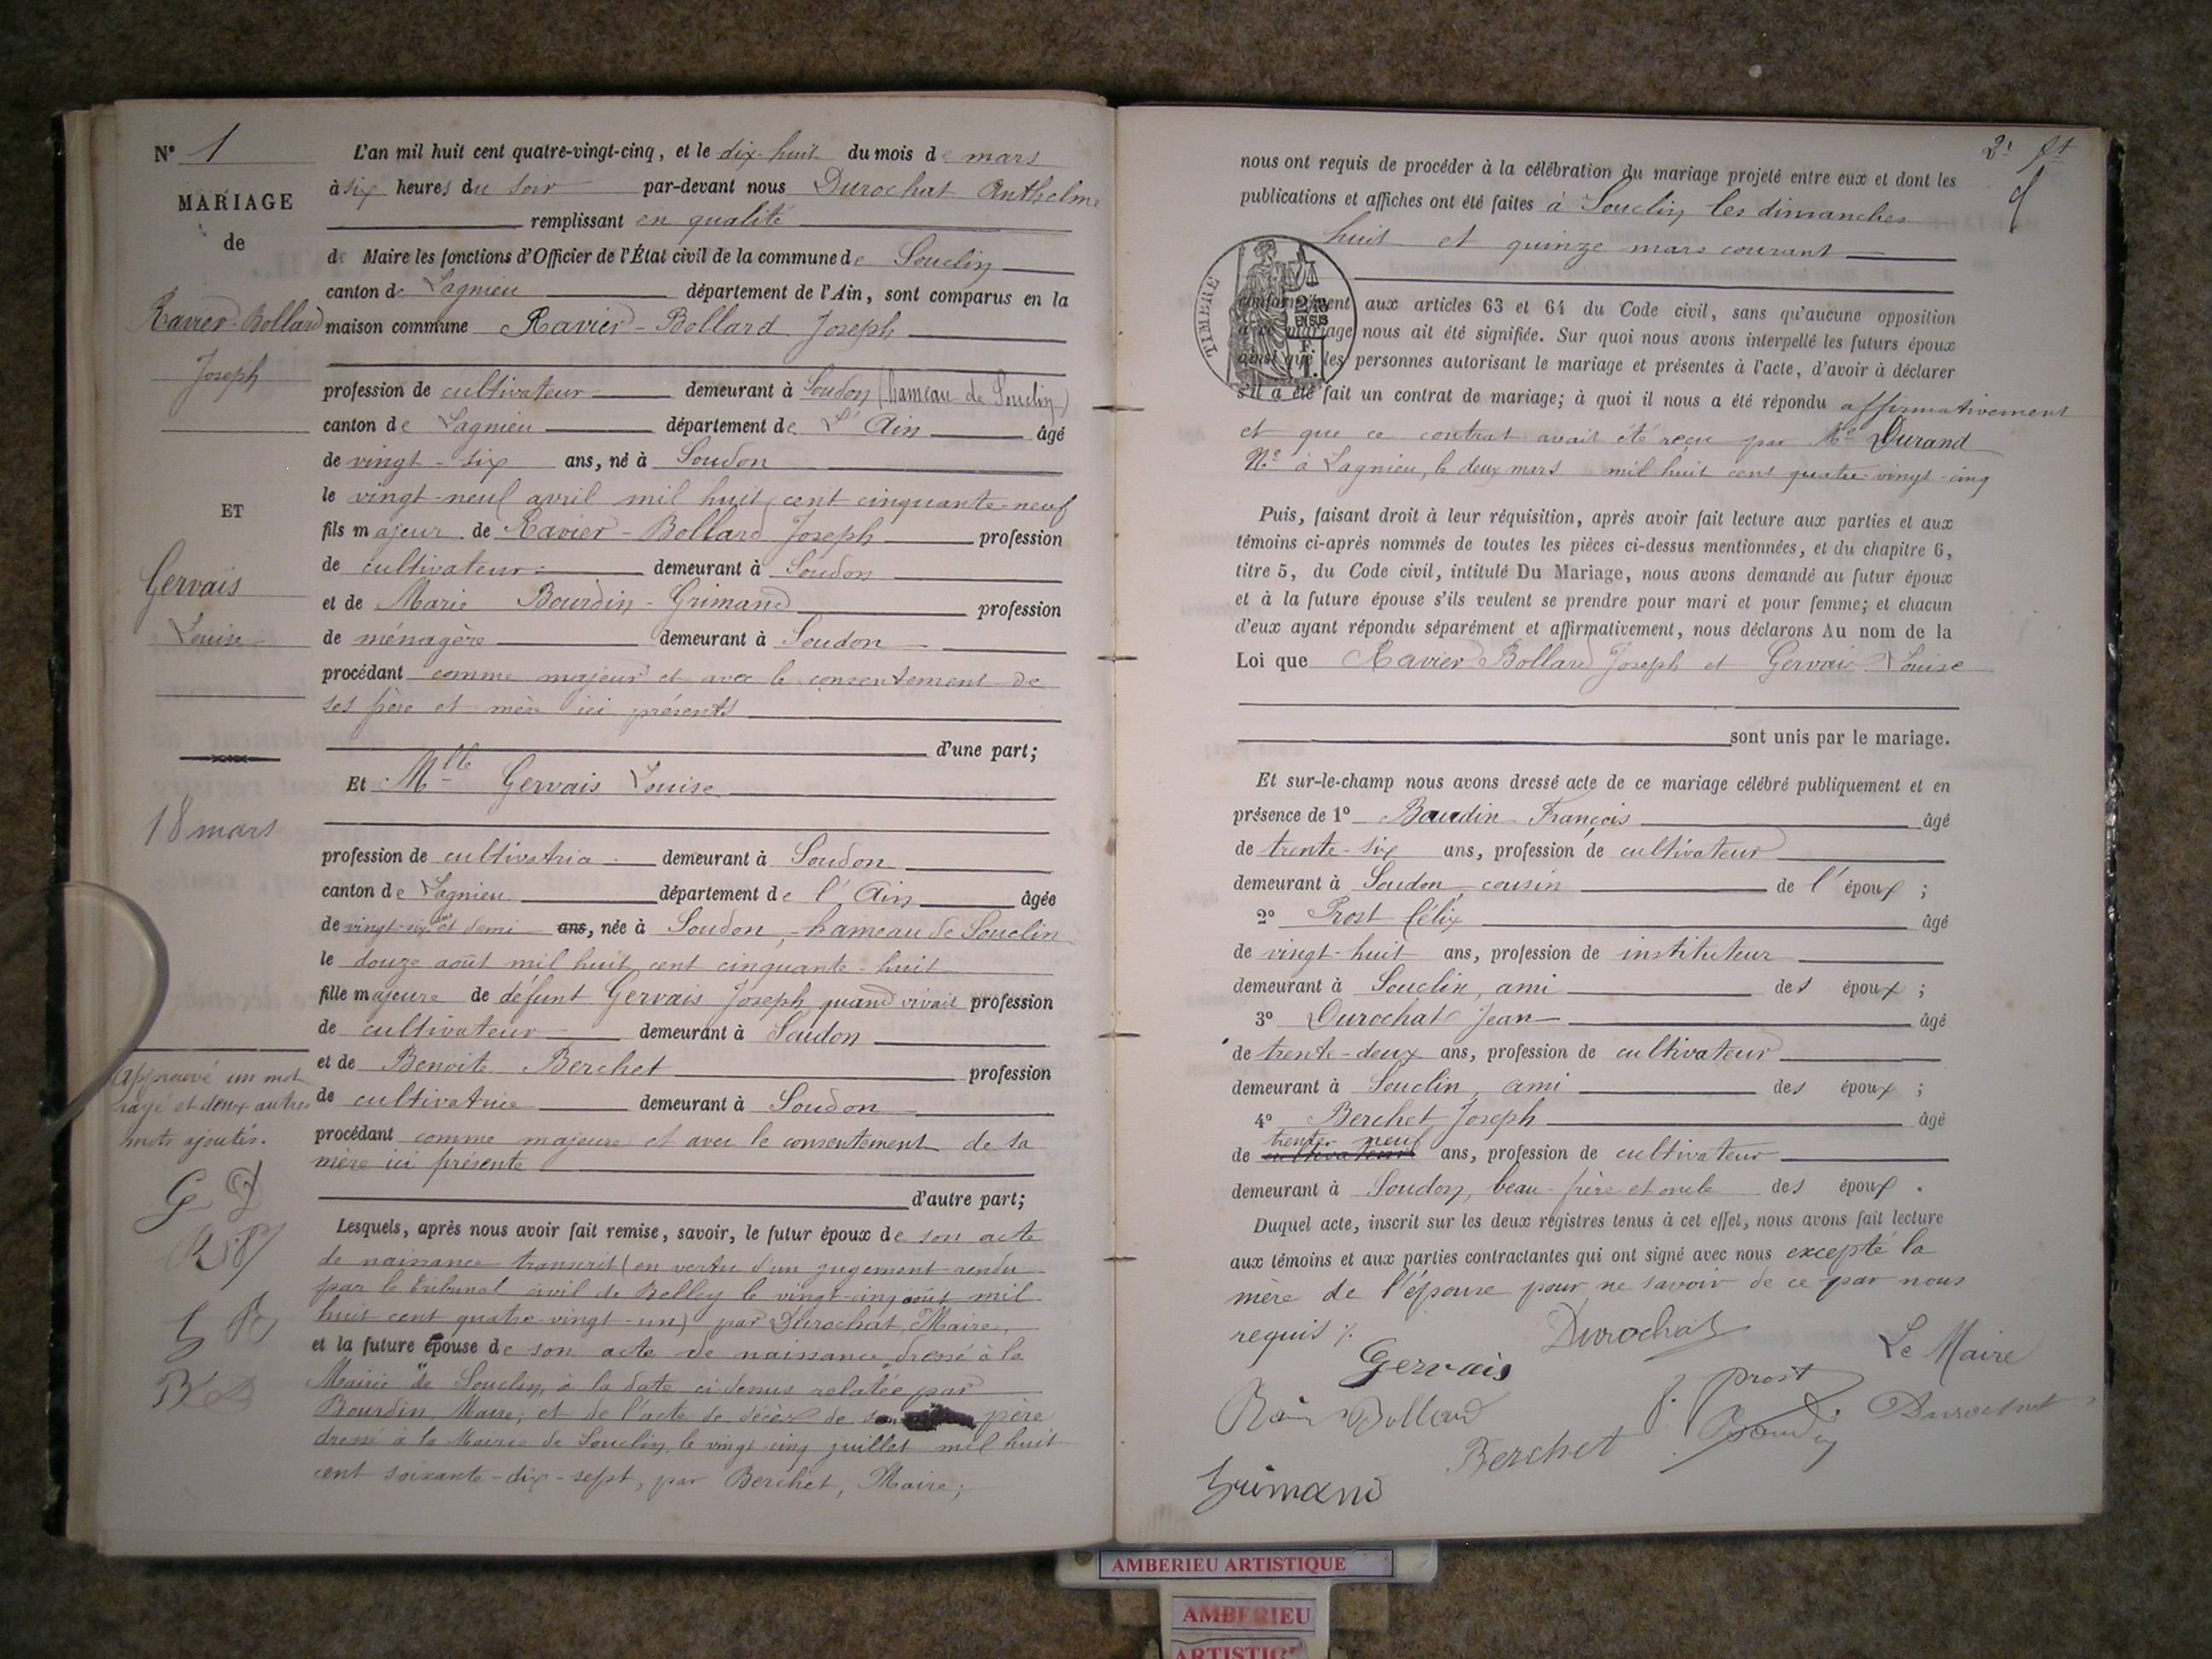 N° 1
MARIAGE
de
Ravier-Bollard
Joseph
ET
Gervais
Louise
18 mars
Approuvé un mot
rayé et deux autres
mots ajoutés.
L'an mil huit cent quatre-vingt-cinq, et le dix-huit du mois de mars
à six heures du soir par-devant nous Durochat Anthelme
remplissant en qualité
de Maire les fonctions d'Officier de l'État civil de la commune de Souclin
canton de Lagnieu département de l'Ain, sont comparus en la
maison commune Ravier-Bollard Joseph
profession de cultivateur demeurant à Soudon (hameau de Souclin)
canton de Lagnieu département de L'Ain âgé
de vingt-six ans, né à Soudon
le vingt-neuf avril mil huit cent cinquante-neuf
fils majeur de Ravier-Bollard Joseph profession
de cultivateur demeurant à Soudon
et de Marie Bourdin-Grimand profession
de ménagère demeurant à Soudon
procédant comme majeur et avec le consentement de
ses père et mère ici présents
d'une part;
Et Mlle Gervais Louise
profession de cultivatrice demeurant à Soudon
canton de Lagnieu département de l'Ain âgée
de vingt-six ans et demi ans, née à Soudon, hameau de Souclin
le douze août mil huit cent cinquante-huit
fille majeure de défunt Gervais Joseph quand vivait profession
de cultivateur demeurant à Soudon
et de Benoite Berchet profession
de cultivatrice demeurant à Soudon
procédant comme majeure et avec le consentement de sa
mère ici présente
d'autre part;
Lesquels, après nous avoir fait remise, savoir, le futur époux de son acte
de naissance transcrit (en vertu d'un jugement rendu
par le tribunal civil de Belley le vingt-cinq août mil
huit cent quatre-vingt-un) par Durochat, Maire,
et la future épouse de son acte de naissance dressé à la
Mairie de Souclin, à la date ci-dessus relatée par
Bourdin, Maire; et de l'acte de décès de son père
dressé à la Mairie de Souclin, le vingt-cinq juillet mil huit
cent soixante-dix-sept, par Berchet, Maire;
nous ont requis de procéder à la célébration du mariage projeté entre eux et dont les
publications et affiches ont été faites à Souclin les dimanches
huit et quinze mars courant
TIMBRE
2/10
EN SUS
conformément aux articles 63 et 64 du Code civil, sans qu'aucune opposition
à ce mariage nous ait été signifiée. Sur quoi nous avons interpellé les futurs époux
ainsi que les personnes autorisant le mariage et présentes à l'acte, d'avoir à déclarer
s'il a été fait un contrat de mariage; à quoi il nous a été répondu affirmativement
et que ce contrat avait été reçu par Me Durand
Nre à Lagnieu, le deux mars mil huit cent quatre-vingt-cinq
Puis, faisant droit à leur réquisition, après avoir fait lecture aux parties et aux
témoins ci-après nommés de toutes les pièces ci-dessus mentionnées, et du chapitre 6,
titre 5, du Code civil, intitulé Du Mariage, nous avons demandé au futur époux
et à la future épouse s'ils veulent se prendre pour mari et pour femme; et chacun
d'eux ayant répondu séparément et affirmativement, nous déclarons Au nom de la
Loi que Ravier Bollard Joseph et Gervais Louise
sont unis par le mariage.
Et sur-le-champ nous avons dressé acte de ce mariage célébré publiquement et en
présence de 1° Bourdin François âgé
de trente-six ans, profession de cultivateur
demeurant à Soudon, cousin de l'époux ;
2° Prost Félix âgé
de vingt-huit ans, profession de instituteur
demeurant à Souclin, ami des époux ;
3° Durochat Jean âgé
de trente-deux ans, profession de cultivateur
demeurant à Souclin, ami des époux ;
4° Berchet Joseph âgé
trente neuf
de cultivateur ans, profession de cultivateur
demeurant à Soudon, beau-frère et oncle des époux.
Duquel acte, inscrit sur les deux registres tenus à cet effet, nous avons fait lecture
aux témoins et aux parties contractantes qui ont signé avec nous excepté la
mère de l'épouse pour ne savoir de ce par nous
requis
Durochat
Le Maire
Gervais
prost
Durochat
Bollard
Berchet
Grimand
AMBERIEU ARTISTIQUE
AMBERIEU
ARTISTIQUE